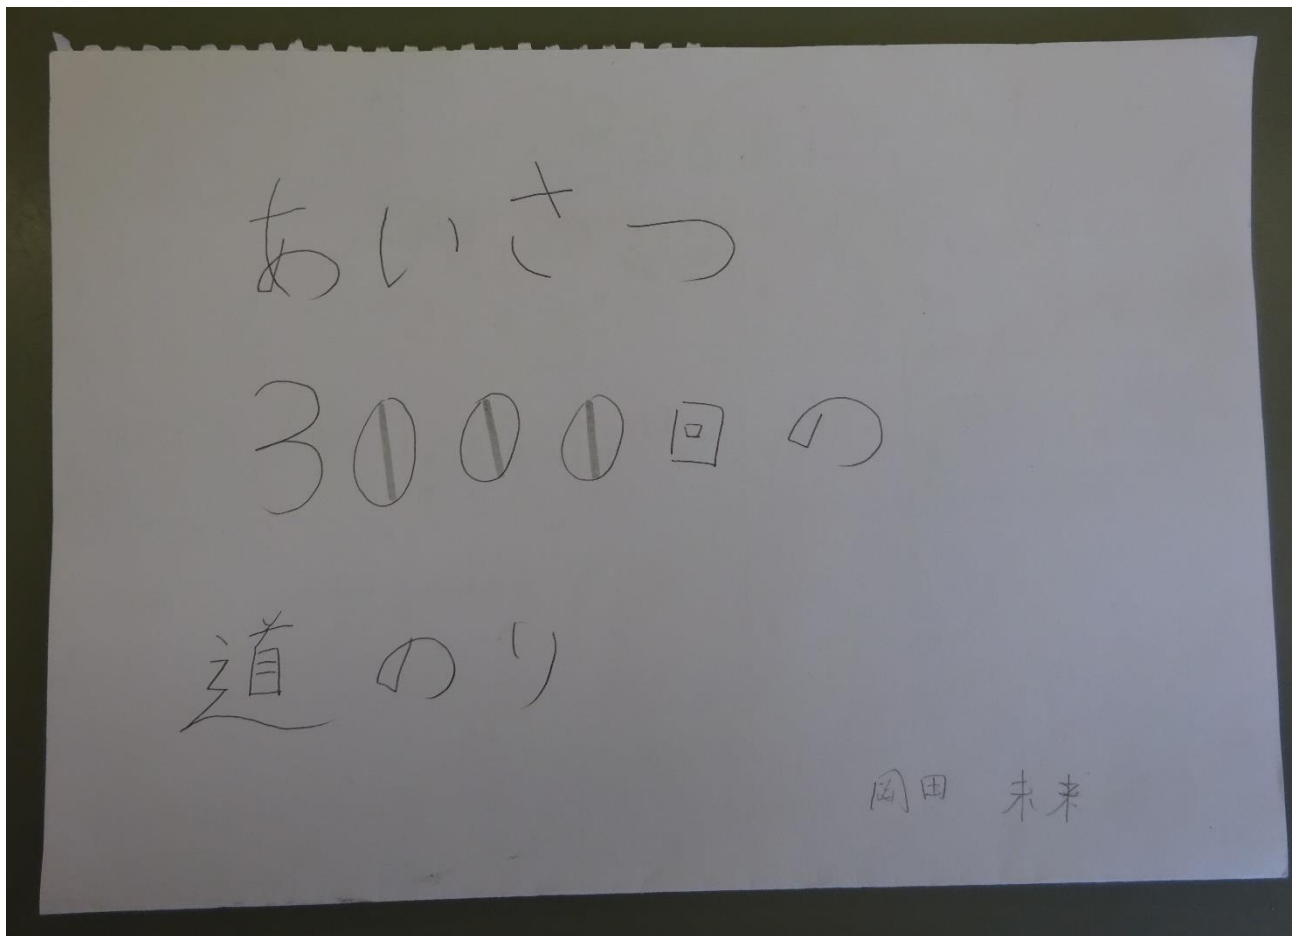 あいさつ
3000回の
道のり
岡田 未来